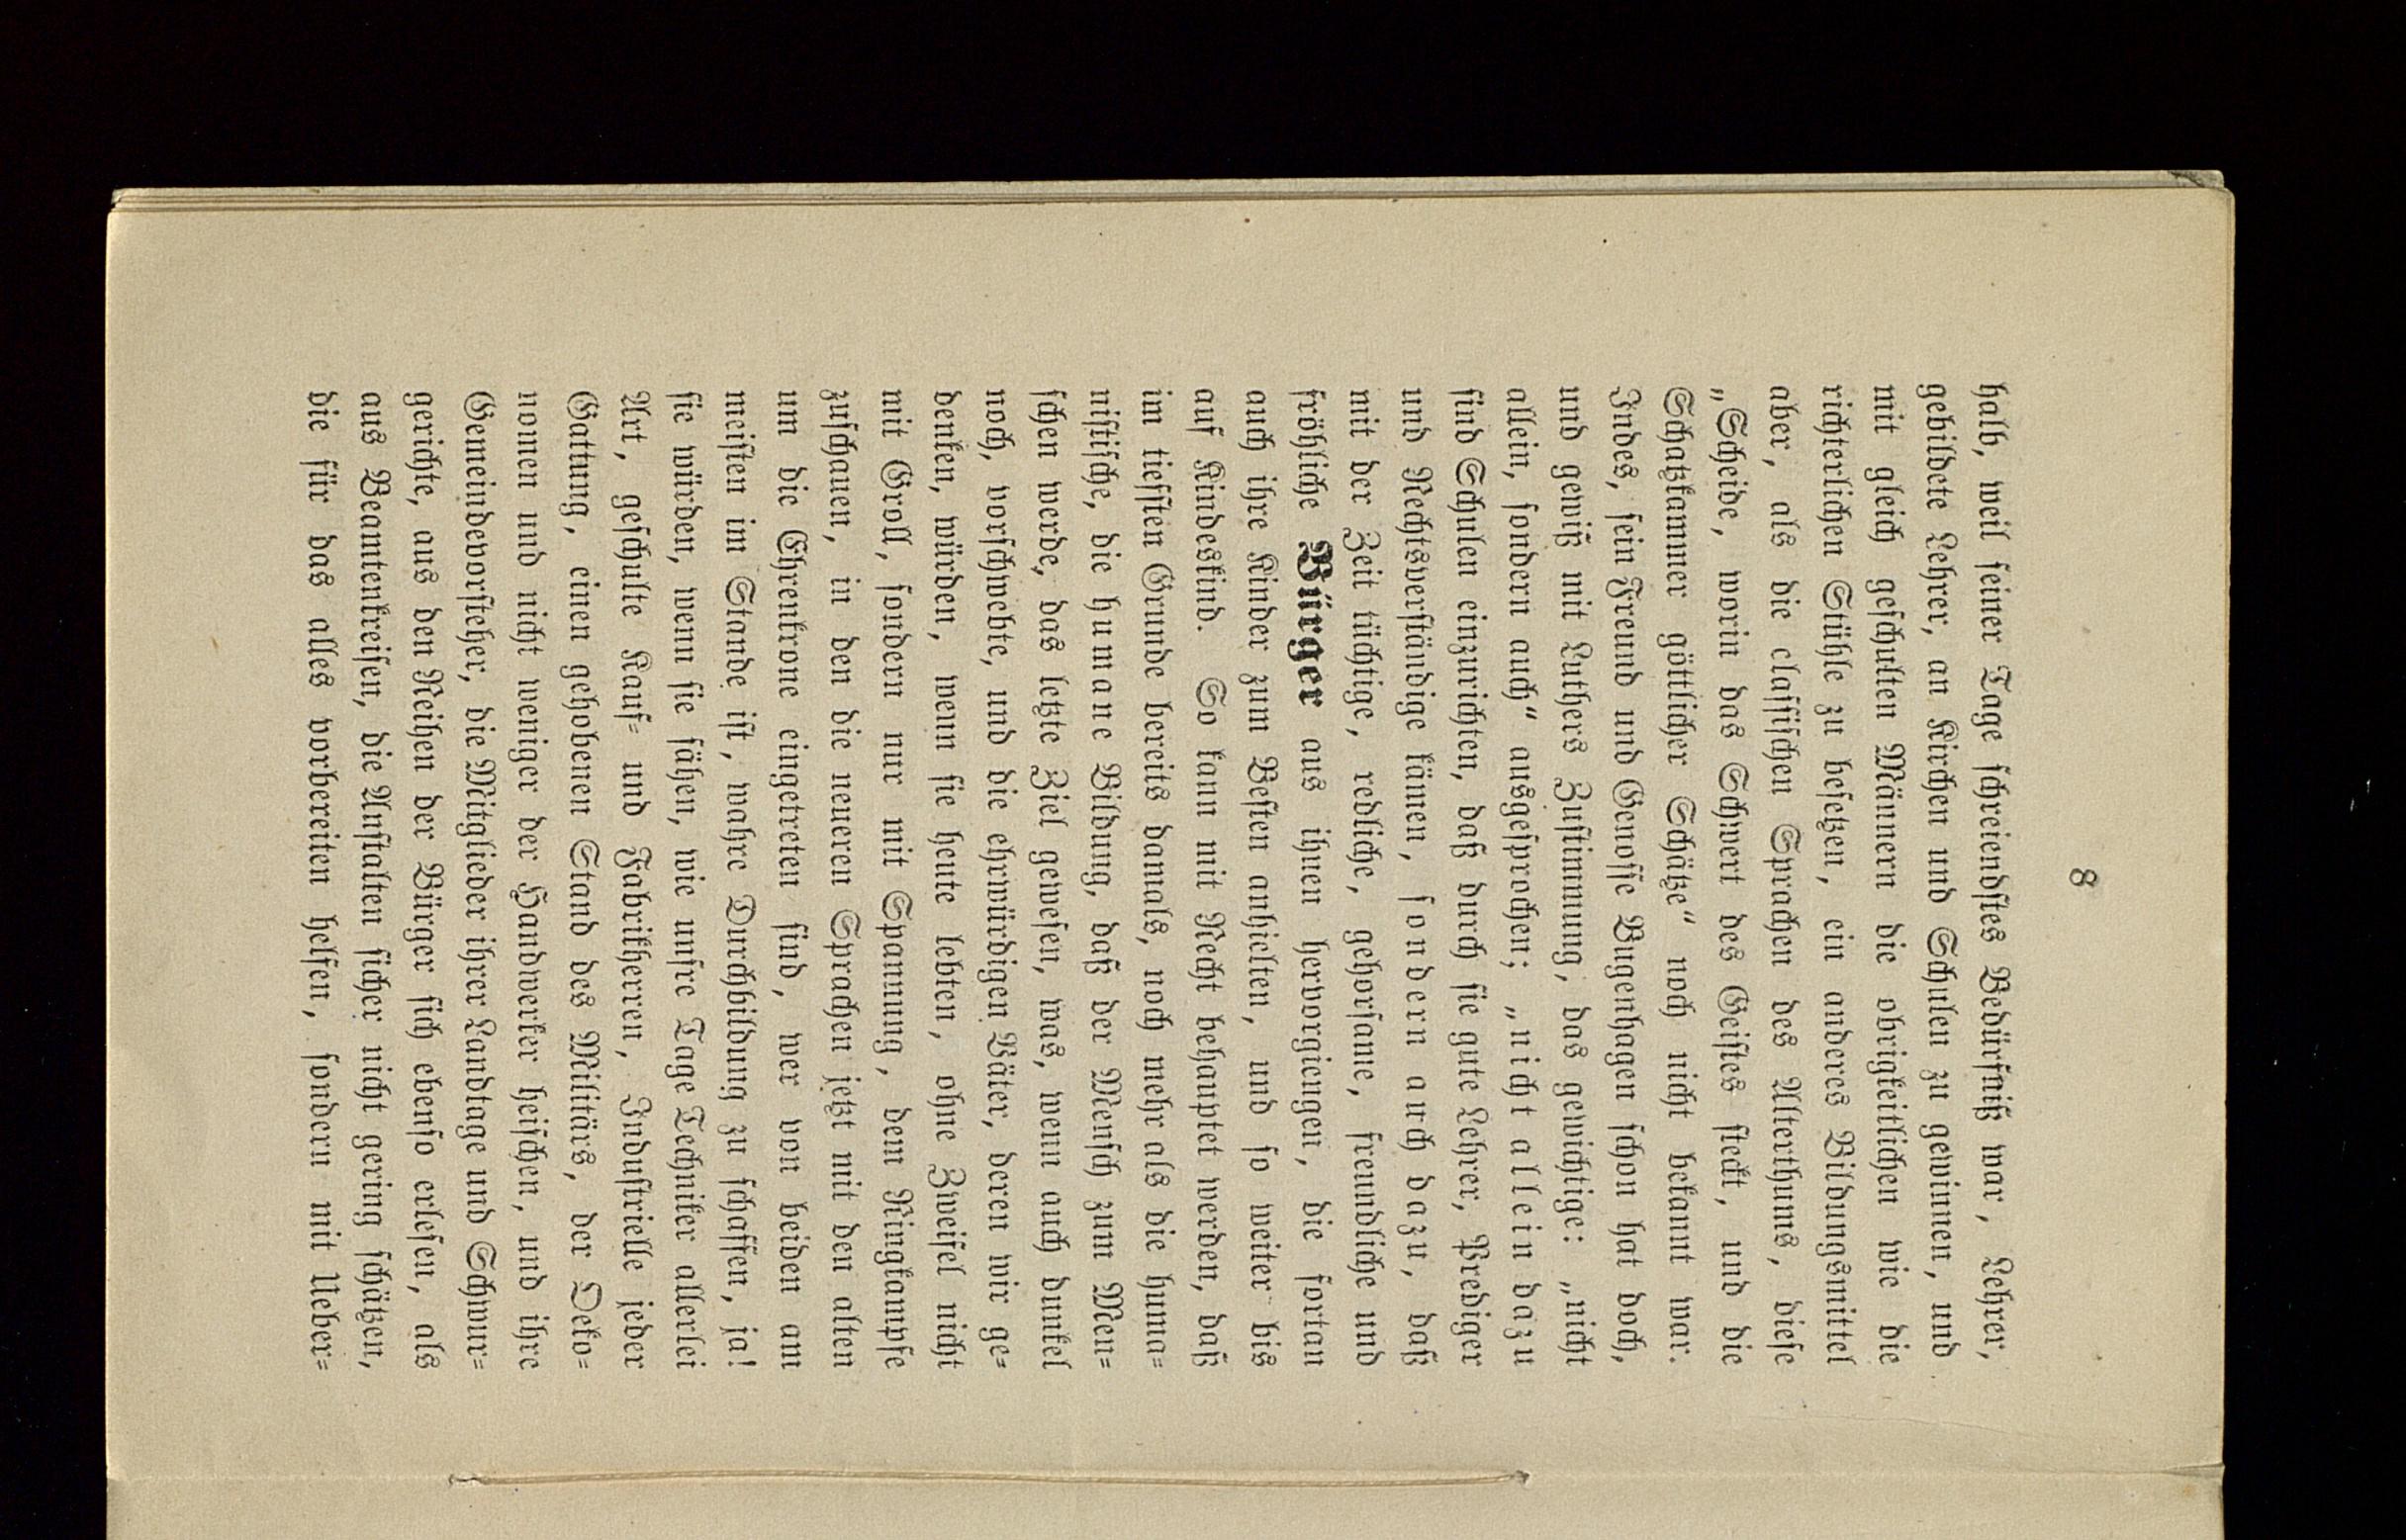 8
halb, weil ſeiner Tage ſchreiendſtes Bedürfniß war, Lehrer,
gebildete Lehrer, an Kirchen und Schulen zu gewinnen, und
mit gleich geſchulten Männern die obrigkeitlichen wie die
richterlichen Stühle zu beſetzen, ein anderes Bildungsmittel
aber, als die claſſiſchen Sprachen des Alterthums, dieſe
„Scheide, worin das Schwert des Geiſtes ſteckt, und die
Schatzkammer göttlicher Schätze“ noch nicht bekannt war.
Indes, ſein Freund und Genoſſe Bugenhagen ſchon hat doch,
und gewiß mit Luthers Zuſtimmung, das gewichtige: „nicht
allein, ſondern auch“ ausgeſprochen; „nicht allein dazu
ſind Schulen einzurichten, daß durch ſie gute Lehrer, Prediger
und Rechtsverſtändige kämen, ſondern auch dazu, daß
mit der Zeit tüchtige, redliche, gehorſame, freundliche und
fröhliche Bürger aus ihnen hervorgiengen, die fortan
auch ihre Kinder zum Beſten anhielten, und ſo weiter bis
auf Kindeskind. So kann mit Recht behauptet werden, daß
im tiefſten Grunde bereits damals, noch mehr als die huma⸗
niſtiſche, die humane Bildung, daß der Menſch zum Men⸗
ſchen werde, das letzte Ziel geweſen, was, wenn auch dunkel
noch, vorſchwebte, und die ehrwürdigen Väter, deren wir ge⸗
denken, würden, wenn ſie heute lebten, ohne Zweifel nicht
mit Groll, ſondern nur mit Spannung, dem Ringkampfe
zuſchauen, in den die neueren Sprachen jetzt mit den alten
um die Ehrenkrone eingetreten ſind, wer von beiden am
meiſten im Stande iſt, wahre Durchbildung zu ſchaffen, ja!
ſie würden, wenn ſie ſähen, wie unſre Tage Techniker allerlei
Art, geſchulte Kauf⸗ und Fabrikherren, Induſtrielle jeder
Gattung, einen gehobenen Stand des Militärs, der Oeko⸗
nomen und nicht weniger der Handwerker heiſchen, und ihre
Gemeindevorſteher, die Mitglieder ihrer Landtage und Schwur⸗
gerichte, aus den Reihen der Bürger ſich ebenſo erleſen, als
aus Beamtenkreiſen, die Anſtalten ſicher nicht gering ſchätzen,
die für das alles vorbereiten helfen, ſondern mit Ueber⸗